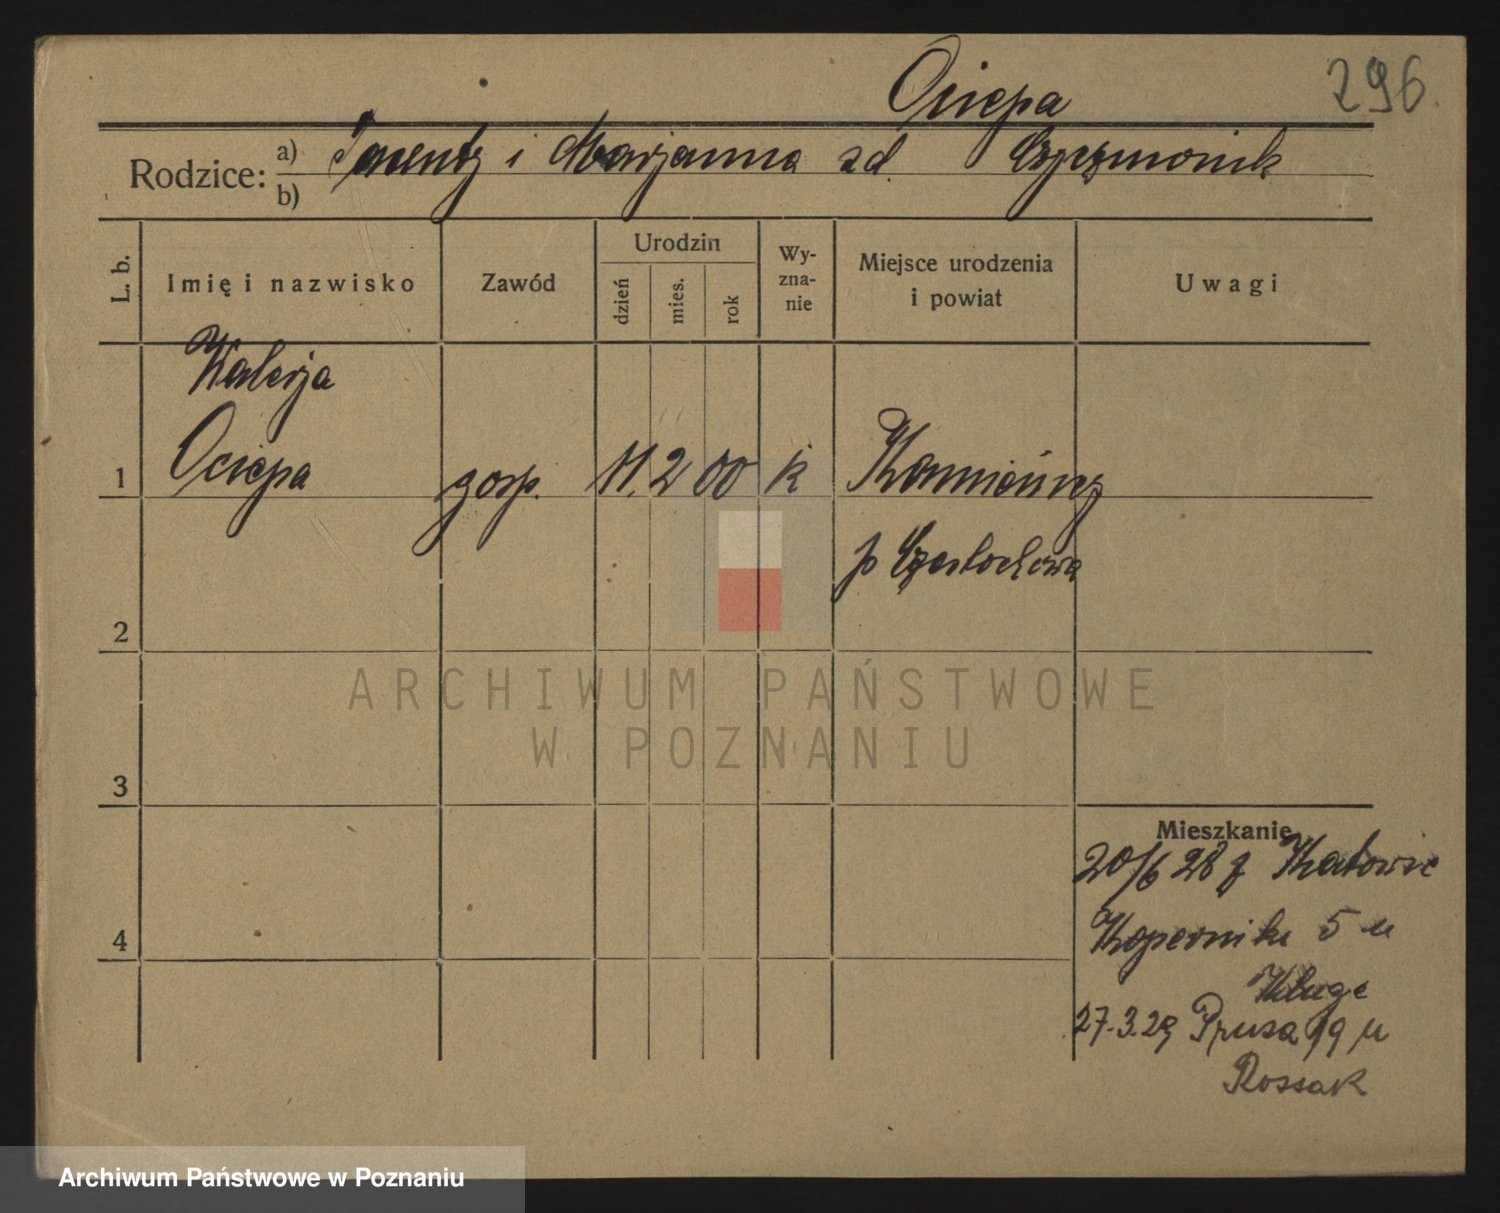 Ociepa
296
Rodzice: a) i Marjanna zd.
b)
L. b.
Imię i nazwisko
Zawód
Urodzin
dzień
mies.
rok
Wy-
zna-
nie
Miejsce urodzenia
i powiat
Uwagi
Walerja
1 Ociepa gosp. 11. 2 00 k
p Częstochowa
2
3
4
Mieszkanie
20/6 28 z Katowic
Kopernika 5 u
Kluge
27.3.29 Prusa 19 u
Rossak
ARCHIWUM PAŃSTWOWE
W POZNANIU
Archiwum Państwowe w Poznaniu